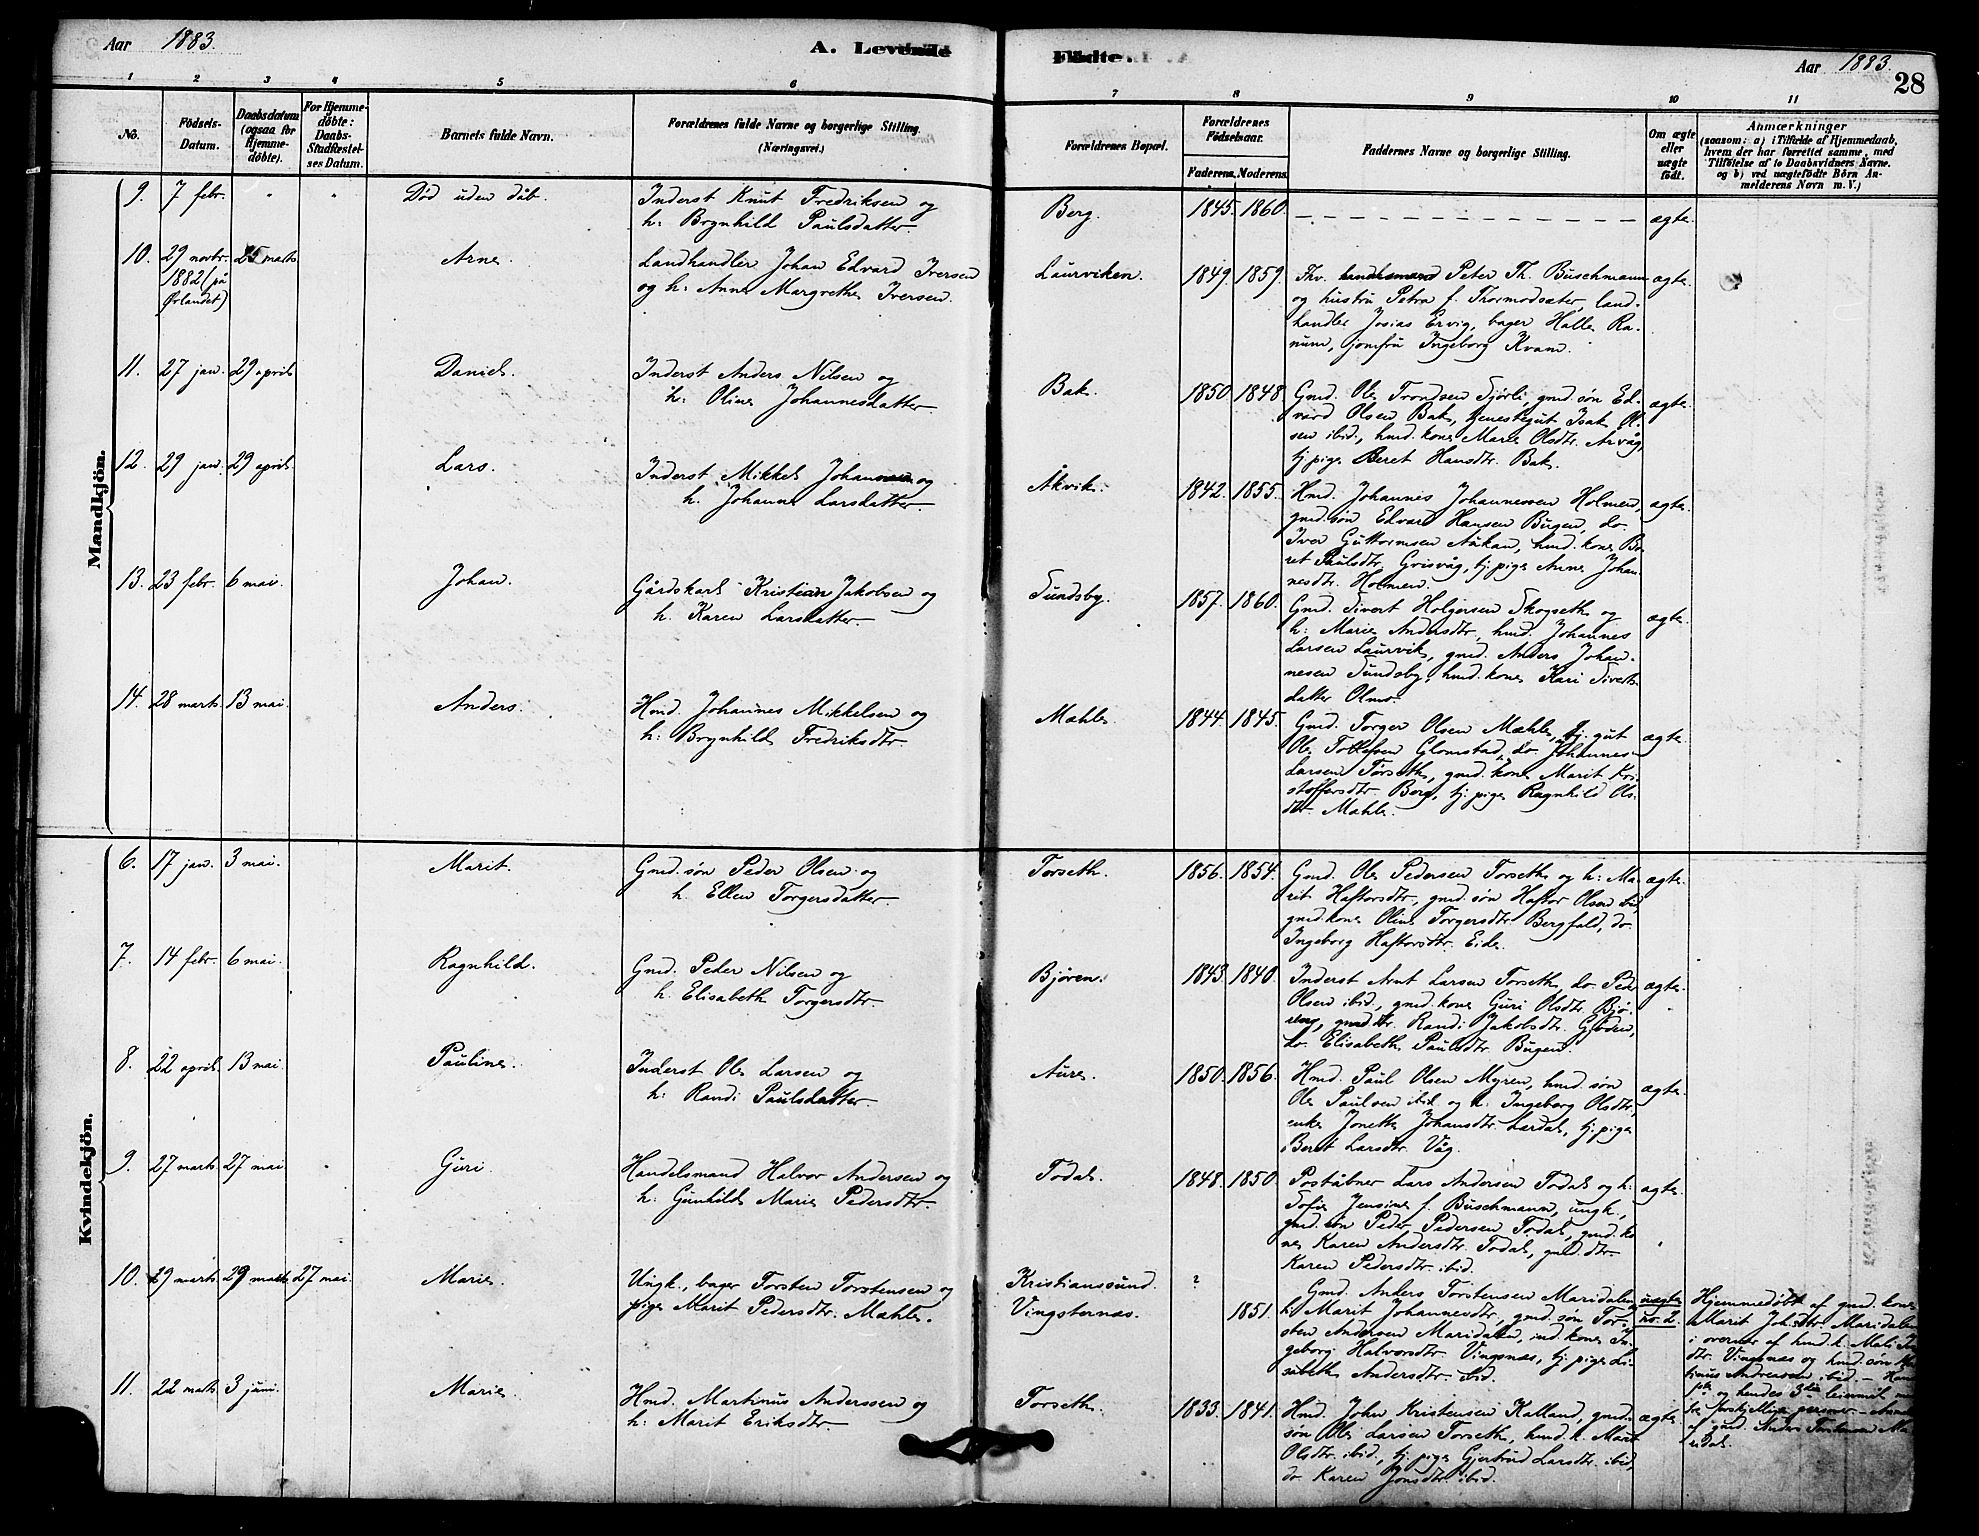 Aar 1883.
A. Levende
Fødte.
Aar 1883.
28
1 2 3 4 5 6 7 8 9 10 11
No.
Födsels-
Datum.
Daabsdatum
(ogsaa for
Hjemme-
döbte).
For Hjemme-
döbte:
Daabs-
Stadfæstel-
ses Datum.
Barnets fulde Navn.
Forældrenes fulde Navne og borgerlige Stilling.
(Næringsvei.)
Forældrenes Bopæl.
Forældrenes
Födselsaar.
Faderens. Moderens.
Faddernes Navne og borgerlige Stilling.
Om ægte
eller
uægte
født.
Anmærkninger
(saasom: a) i Tilfælde af Hjemmedaab,
hvem der har forrettet samme, med
Tilföielse af to Daabsvidners Navne.
og b) ved uægtefödte Börn An-
melderens Navn m. V.)
Mandkjön.
9. 7 febr. " " Död uden dåb.
Inderst Knut Fredriksen og
h: Brynhild Paulsdatter.
Berg. 1845. 1860. ægte.
10. 29 novbr. 25 marts
1882 (på
Ørlandet)
Arne.
Landhandler Johan Edvard Iversen
og h: Anna Margrethe Iversen.
Laurviken. 1849. 1859.
Thv. Peter Th. Buschmann
og hustru Petra f. Thormodsæter, land-
handler Josias Ervig, bager Halle Ra-
num, jomfru Ingeborg Kvam.
ægte.
11. 27 jan. 29 april. Daniel.
Inderst Anders Nilsen og
h: Oline Johannesdatter
Bak. 1850. 1848.
Gmd. Ole Trondsen Sjørli, gmd. søn Ed-
vard Olsen Bak, tjenestegut Isak Ol-
sen ibid., hmd. kone Marie Olsdtr. Arvåg,
tj. pige Beret Hansdtr. Bak.
ægte.
12. 29 jan. 29 april. Lars.
Inderst Mikkel Johannesen og
h. Johanne Larsdatter.
Åkvik. 1842. 1855.
Hmd. Johannes Johannesen Holmen,
gmd. søn Edvard Hansen Bugen, do.
Iver Guttormsen Aukan, hmd. kone Be-
ret Paulsdtr. Grisvåg, tj. pige Anne Johan-
nesdtr. Holmen.
ægte.
13. 23 febr. 6 mai. Johan.
Gårdskarl Kristian Jakobsen og
h. Karen Larsdatter.
Sundsby. 1857. 1860.
Gmd. Sivert Holgersen Skogseth og
h: Marie Andersdtr., hmd. Johannes
Larsen Laurvik, gmd. Anders Johan-
nesen Sundsby, hmd. kone Kari Siverts-
datter Olmo.
ægte.
14. 28 marts. 13 mai. Anders.
Hmd. Johannes Mikkelsen og
h: Brynhild Fredriksdtr.
Mæhle. 1844. 1845.
Gmd. Torger Olsen Mæhle, tj. gut
Ole Tollefsen Glomstad, do. Johannes
Larsen Torseth, gmd. kone Marit Kri-
stoffersdtr. Berg, tj. pige Ragnhild Ols-
dtr. Mæhle.
ægte.
Kvindekjön.
6. 17 jan. 3 mai. Marit.
Gmd. søn Peder Olsen og
h. Ellen Torgersdatter.
Torseth. 1856. 1854.
Gmd. Ole Pedersen Torseth og h: Ma-
rit Haftorsdtr., gmd. søn Haftor Olsen ibid,
gmd. kone Oline Torgersdtr. Bergfald, do.
Ingeborg Haftorsdtr. Eide.
ægte.
7. 14 febr. 6 mai. Ragnhild.
Gmd. Peder Nilsen og
h. Elisabeth Torgersdtr.
Bjøren. 1843. 1840.
Inderst Arnt Larsen Torseth, do. Peder
Olsen ibid., gmd. kone Guri Olsdtr. Bjø-
ren, gmd. dtr. Randi Jakobsdtr.
do. Elisabeth Paulsdtr. Bugen.
ægte.
8. 22 april. 13 mai. Pauline.
Inderst Ole Larsen og
h: Randi Paulsdatter.
Aure. 1850. 1856.
Hmd. Paul Olsen Myren, hmd. søn
Ole Paulsen ibid og h: Ingeborg Olsdtr,
enke Jonetta Johansdtr. Lerdal, tj. pige
Beret Larsdtr. Våg.
ægte.
9. 27 marts. 27 mai Guri.
Handelsmand Halvor Andersen og
h: Gunhild Marie Pedersdtr.
Todal. 1848. 1850.
Poståbner Lars Andersen Todal og h:
Sofie Jensine f. Buschmann, ungk.,
gmd. søn Peder Pedersen Todal, gmd. ko-
ne Karen Andersdtr. Todal, gmd. dtr.
Karen Pedersdtr. ibid.
ægte.
10. 29 marts. 29 marts. 27 mai. Marie.
Ungk., bager Torsten Torstensen og
pige Marit Pedersdtr. Mæhle.
Kristianssund. ?
Vingsternæs. 1851.
Gmd. Anders Torstensen Maridalen,
h: Marit Johannesdtr, gmd. søn Tor-
sten Andersen Maridalen, ind. kone In-
geborg Halvorsdtr. Vingsnæs, tj. pige Li-
sabeth Andersdtr. ibid.
uægte
no. 2.
Hjemmedøbt af gmd. kone
Marit Johsdtr. Maridalen
i overvær af hmd. k. Mali
dtr. Vingsnæs og hmd. søn
Andreassen ibid. — Hans
og hendes 3die leiermål med
forskjellige personer. —
af gmd. Anders Torstensen Ma-
ridal.
11. 22 marts. 3 juni. Marie.
Hmd. Martinus Anderssen og
h: Marit Eriksdtr.
Torseth. 1833. 1841.
Hmd. John Kristensen Kalland, gmd.
søn Ole Larsen Torseth, hmd. k. Marit
Olsdtr. ibid., tj. pige Gjertrud Larsdtr. ibid,
do. Karen Jonsdtr. ibid.
ægte.